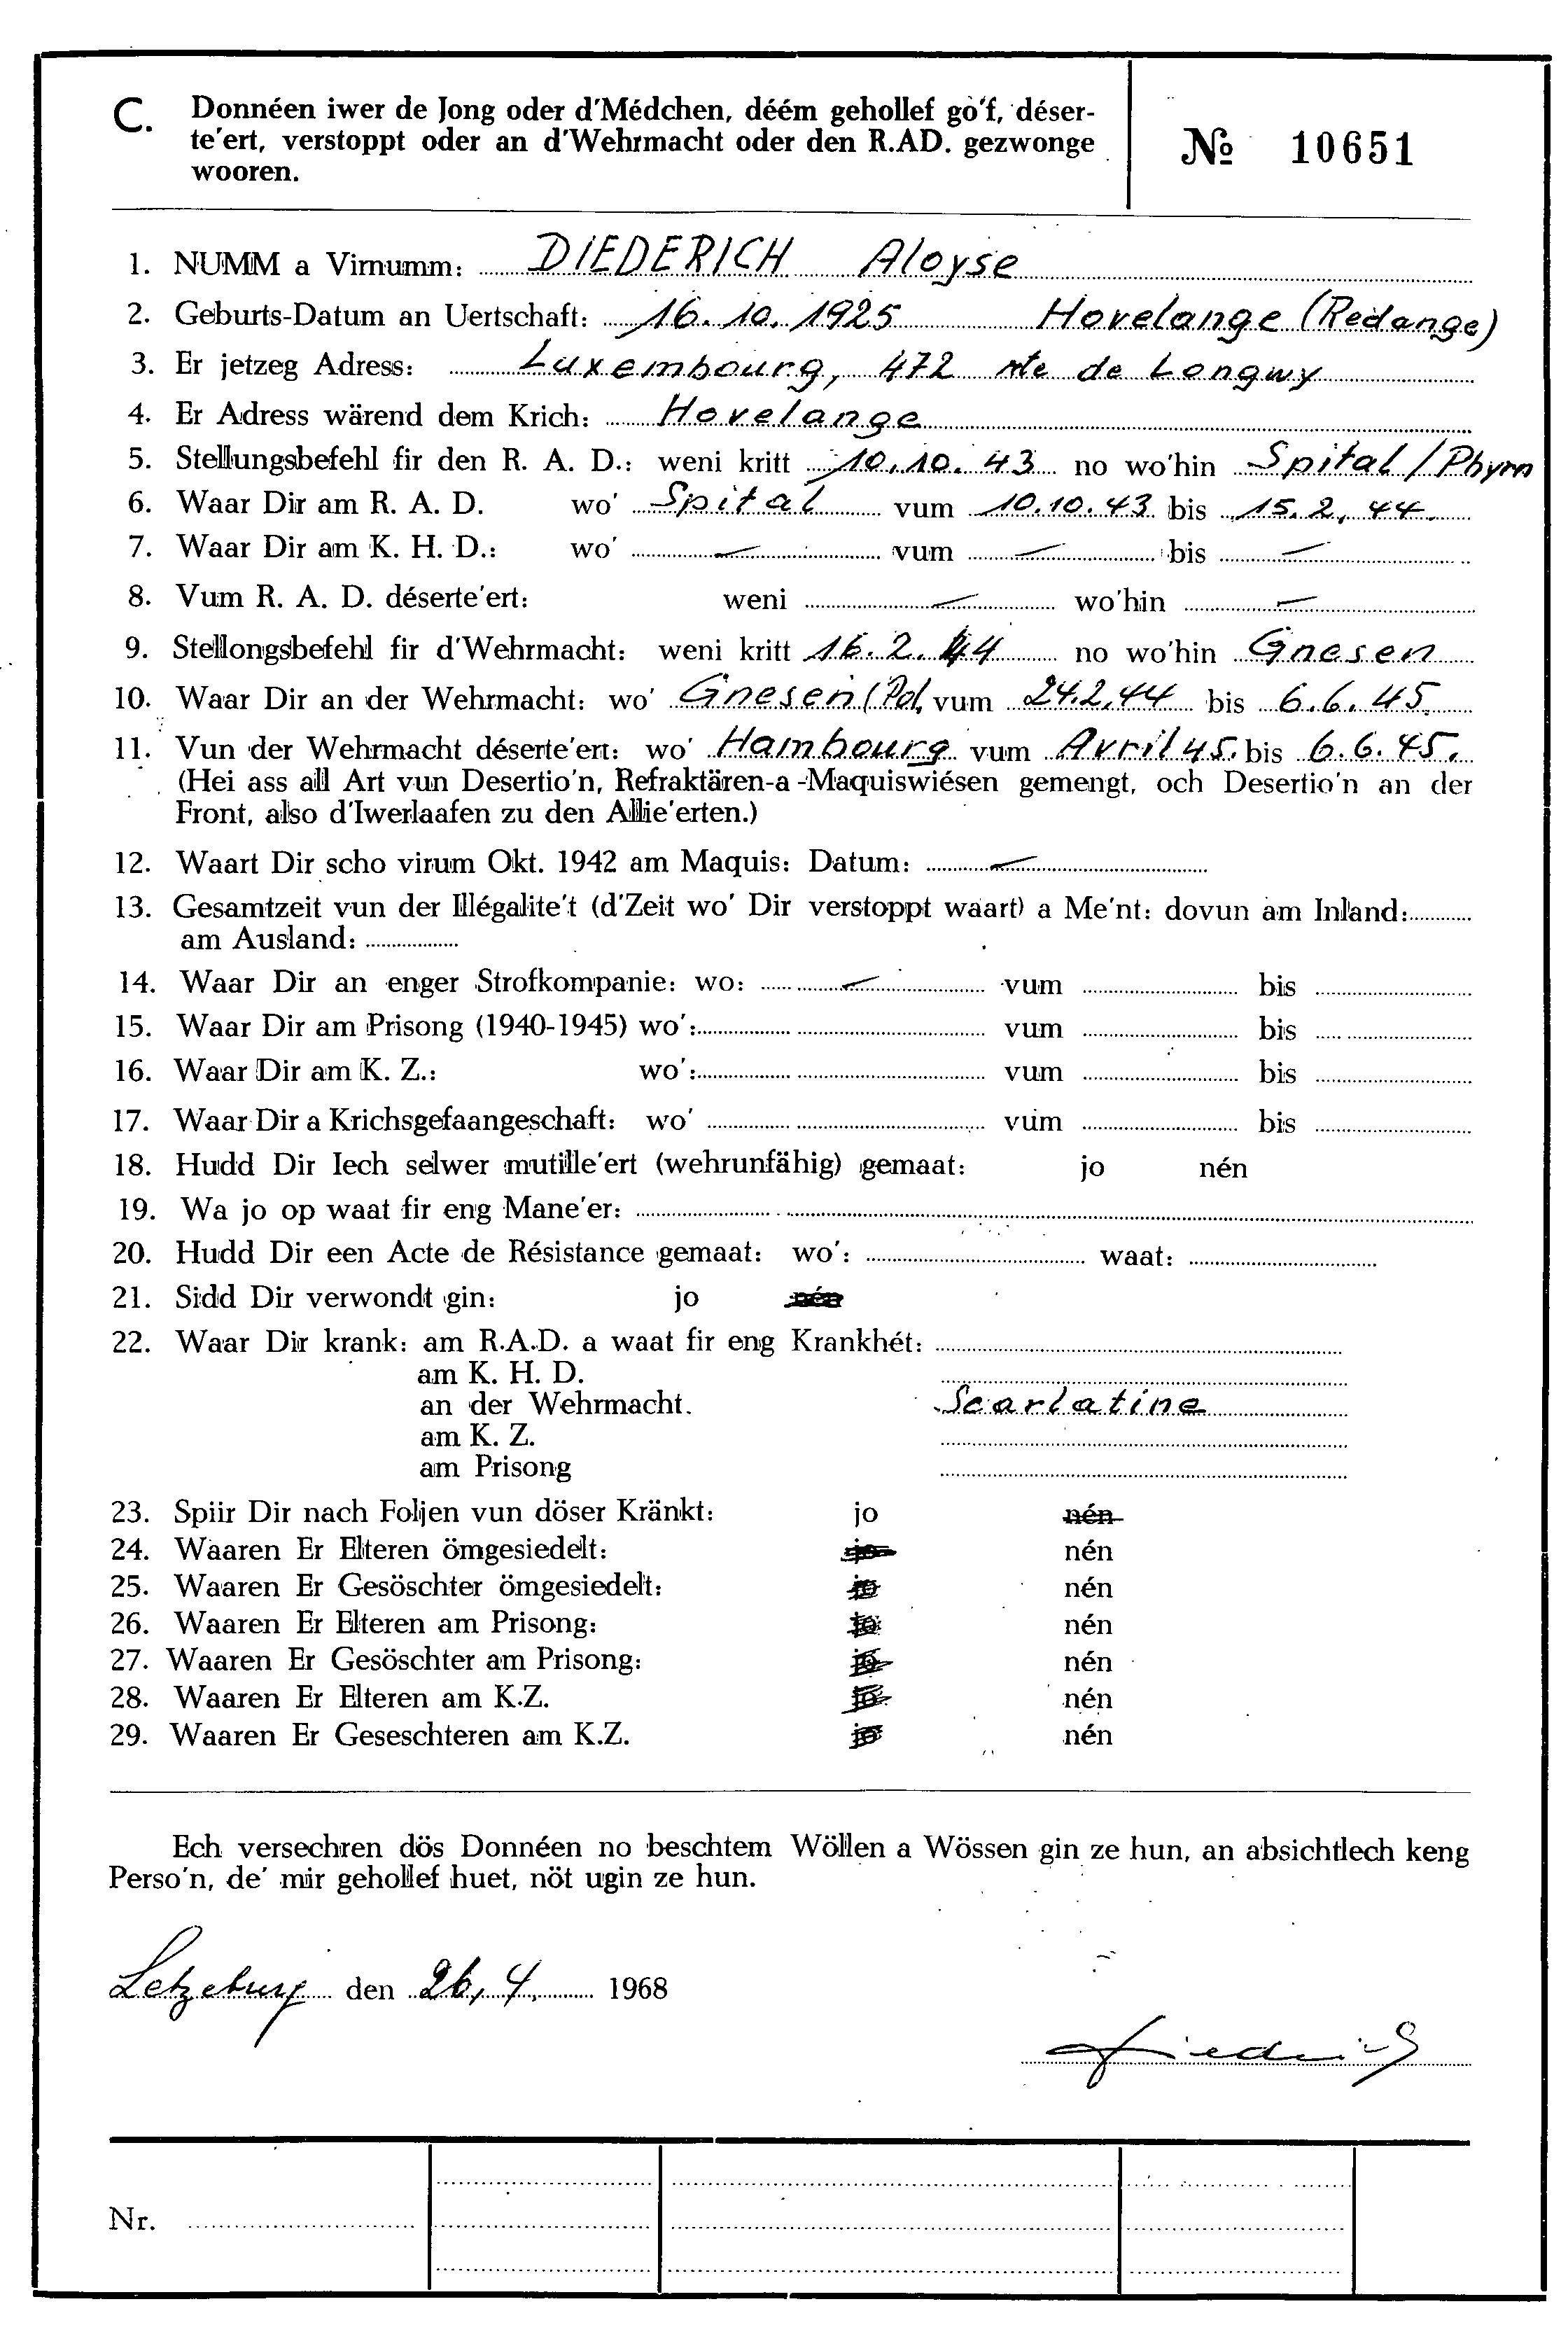 C. Donnéen iwer de Jong oder d'Médchen, déém gehollef go'f, déser-
te'ert, verstoppt oder an d'Wehrmacht oder den R.AD. gezwonge
wooren.
№ 10651
1. NUMM a Virnumm: DIEDERICH Aloyse
2. Geburts-Datum an Uertschaft: 16.10.1925 Hovelange (Redange)
3. Er jetzeg Adress: Luxembourg, 472 rte de Longwy
4. Er Adress wärend dem Krich: Hovelange
5. Stellungsbefehl fir den R. A. D.: weni kritt 10.10.43 no wo'hin Spital/Phyrn
6. Waar Dir am R. A. D. wo' Spital vum 10.10.43 bis 15.2.44.
7. Waar Dir am K. H. D.: wo' — vum — bis —
8. Vum R. A. D. déserte'ert: weni — wo'hin —
9. Stellongsbefehl fir d'Wehrmacht: weni kritt 16.2.44 no wo'hin Gnesen
10. Waar Dir an der Wehrmacht: wo' Gnesen (Pol. vum 24.2.44 bis 6.6.45.
11. Vun der Wehrmacht déserte'ert: wo' Hambourg vum Avril 45. bis 6.6.45.
(Hei ass all Art vun Desertio'n, Refraktären-a -Maquiswiésen gemengt, och Desertio'n an der
Front, also d'Iwerlaafen zu den Allie'erten.)
12. Waart Dir scho virum Okt. 1942 am Maquis: Datum: —
13. Gesamtzeit vun der Illégalite't (d'Zeit wo' Dir verstoppt waart) a Me'nt: dovun am Inland:
am Ausland:
14. Waar Dir an enger Strofkompanie: wo: — vum bis
15. Waar Dir am Prisong (1940-1945) wo': vum bis
16. Waar Dir am K. Z.: wo': vum bis
17. Waar Dir a Krichsgefaangeschaft: wo' vum bis
18. Hudd Dir Iech selwer mutille'ert (wehrunfähig) gemaat: jo nén
19. Wa jo op waat fir eng Mane'er:
20. Hudd Dir een Acte de Résistance gemaat: wo': waat:
21. Sidd Dir verwondt gin: jo nén
22. Waar Dir krank: am R.A.D. a waat fir eng Krankhét:
am K. H. D.
an der Wehrmacht. Scarlatine
am K. Z.
am Prisong
23. Spiir Dir nach Foljen vun döser Kränkt: jo nén
24. Waaren Er Elteren ömgesiedelt: jo nén
25. Waaren Er Gesöschter ömgesiedelt: jo nén
26. Waaren Er Elteren am Prisong: jo nén
27. Waaren Er Gesöschter am Prisong: jo nén
28. Waaren Er Elteren am K.Z. jo nén
29. Waaren Er Geseschteren am K.Z. jo nén
Ech versechren dös Donnéen no beschtem Wöllen a Wössen gin ze hun, an absichtlech keng
Perso'n, de' mir gehollef huet, nöt ugin ze hun.
Letzeburg den 26.4. 1968
Diederich
Nr.